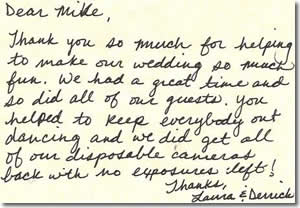 Dear Mike,
Thank you so much for helping
to make our wedding so much
fun. We had a great time and
so did all of our guests. You
helped to keep everybody out
dancing and we did get all
of our disposable cameras
back with no exposures left!
Thanks,
Laura & Derrick